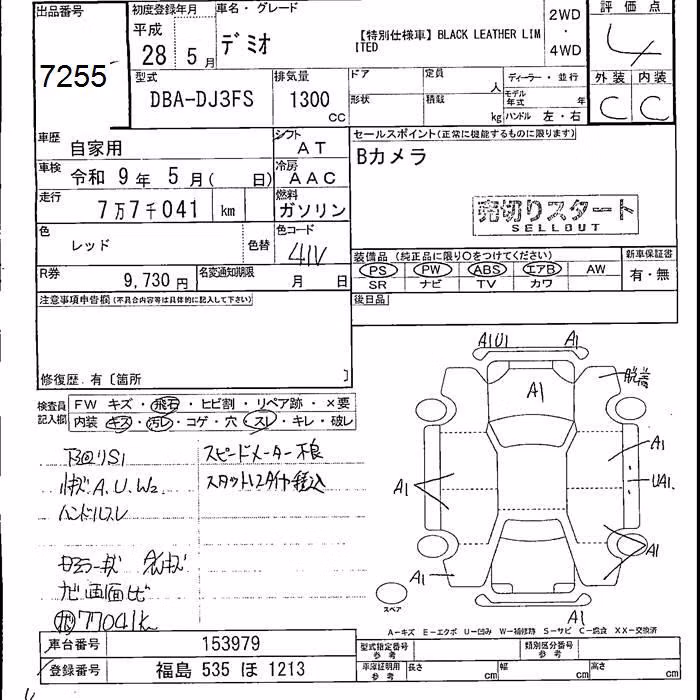 出品番号
7255
初度登録年月
平成
28 5月
車名・グレード
デミオ
【特別仕様車】BLACK LEATHER LIM
ITED
2WD
・
4WD
評価点
4
外装 内装
C C
型式
DBA-DJ3FS
排気量
1300
CC
ドア
定員
人
ディーラー・並行
形状
積載
kg
モデル年式
年
ハンドル 左・右
車歴
自家用
シフト
AT
車検
令和 9年 5月( 日)
冷房
AAC
走行
7万7千041 km
燃料
ガソリン
色
レッド
色替
色コード
41V
R券
9,730円
名変通知期限
月 日
セールスポイント(正常に機能するものに限ります)
Bカメラ
売切りスタート
SELLOUT
装備品 (純正品に限り○をつけてください)
PS PW ABS エアB AW
SR ナビ TV カワ
新車保証書
有・無
後日品
注意事項申告欄(不具合内容等は具体的に記入して下さい)
修復歴.有〔箇所 〕
検査員
記入欄
FW キズ・飛石・ヒビ割・リペア跡・×要
内装・キズ・汚レ・コゲ・穴・スレ・キレ・破レ
下回りS1
スピードメーター不良
小キズA.U.W2
スタットレスタイヤ積込
ハンドルスレ
ナビ画面ヒビ
77041k
A1U1 A1
A1
脱着
A1
UA1
A1
A1
A1
A1
スペア
A-キズ E-エクボ U-凹み W-補修跡 S-サビ C-腐食 XX-交換済
車台番号
153979
登録番号
福島 535 ほ 1213
型式指定番号
参考
類別区分番号
参考
車庫証明用
参考
長さ cm
幅 cm
高さ cm